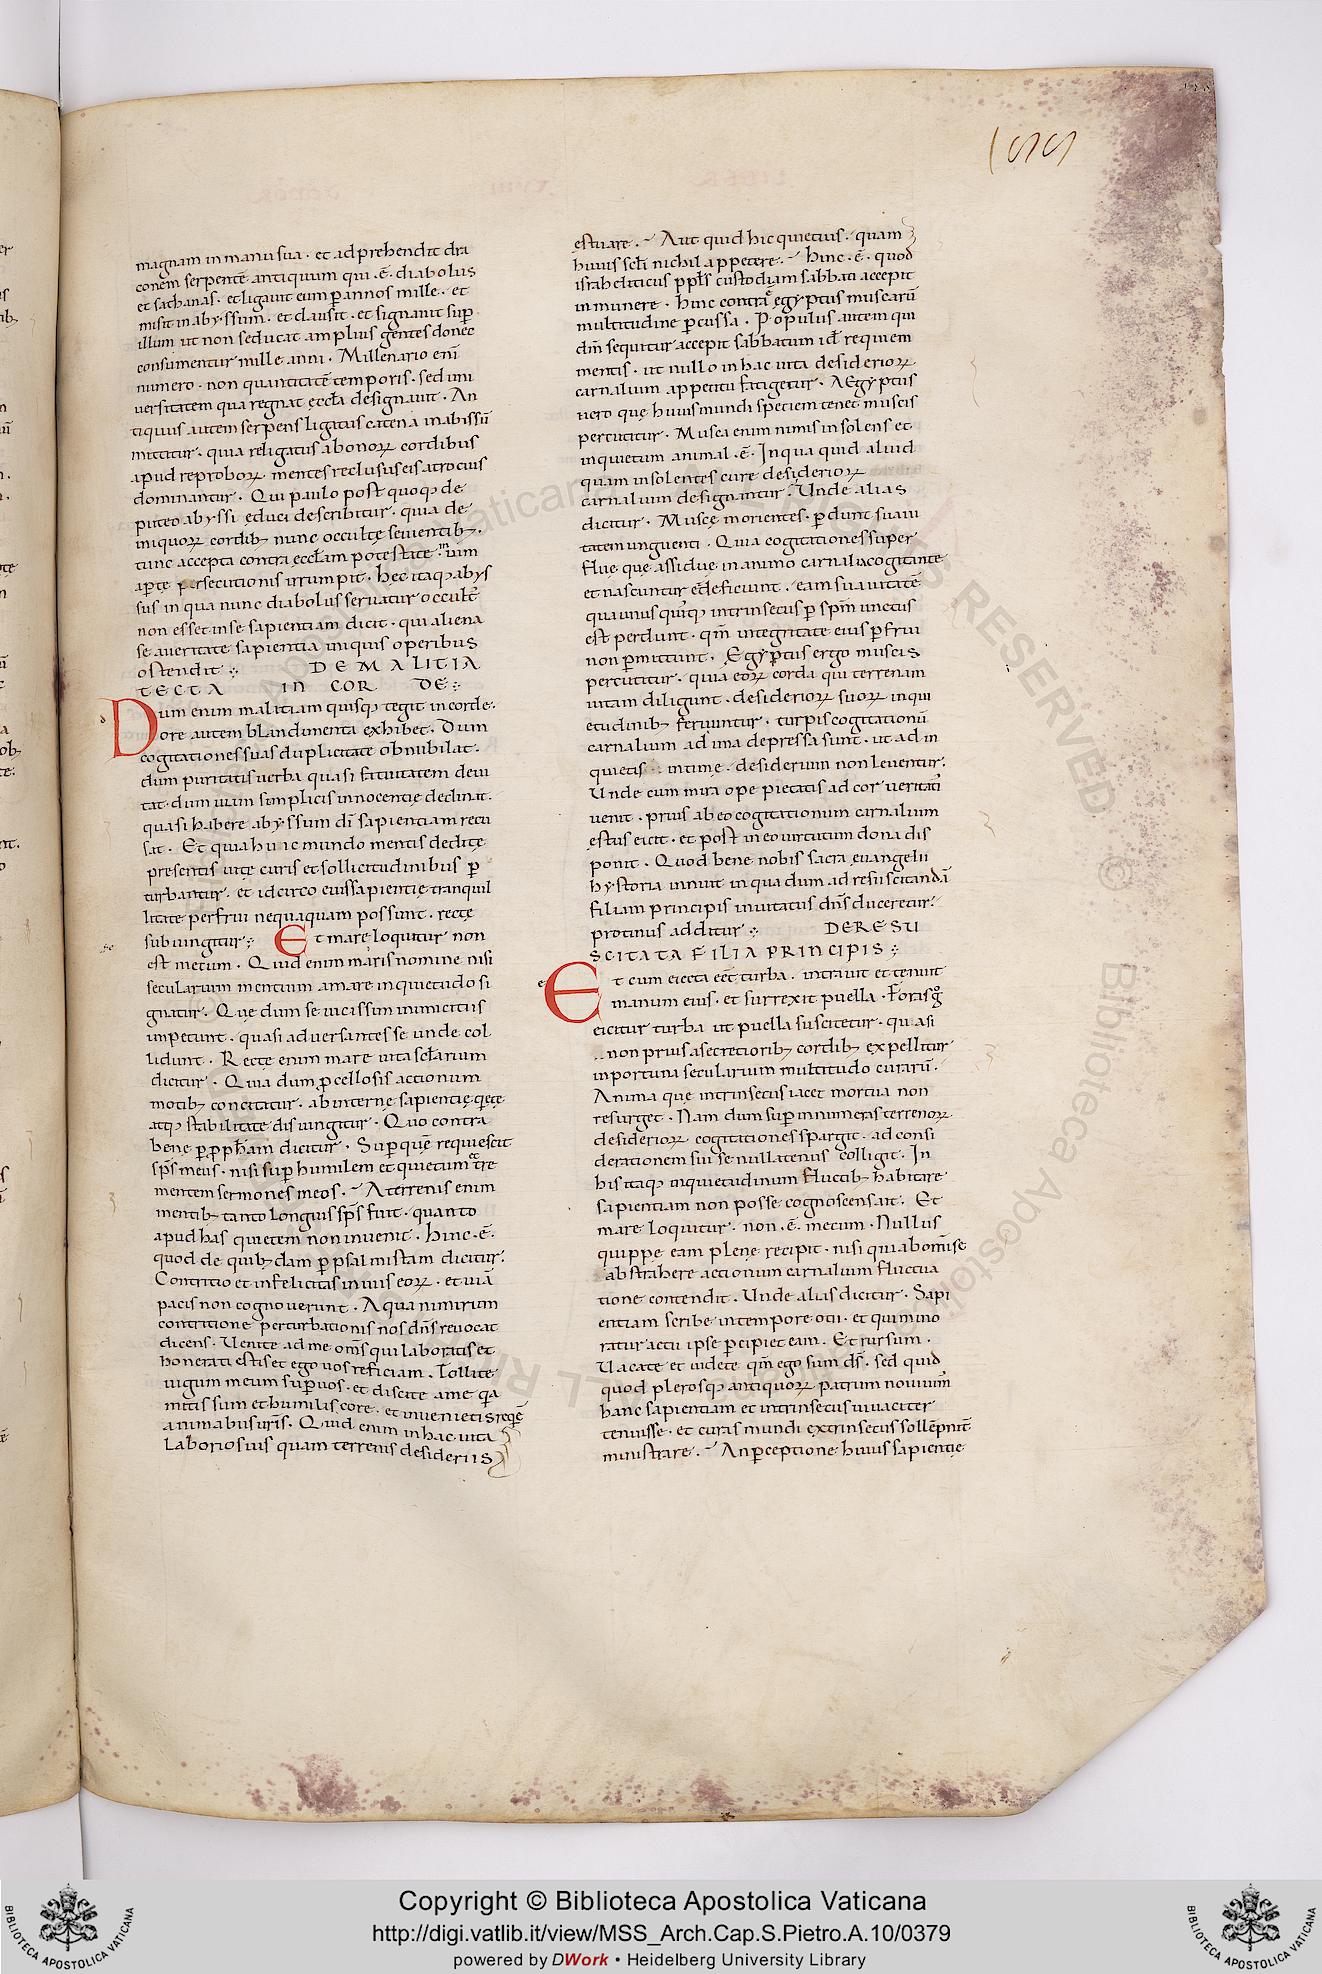 155
magnam in manu sua · et adprehendit dra
conem serpentē antiquum qui · ē · diabolus
et sathanas · et ligavit eum p̄ annos mille · et
misit in abyssum · et clausit · et signavit sup̄
illum ut non seducat amplius gentes donec
consumentur mille anni · Millenario enī
numero · non quantitatē temporis · sed uni
versitatem qua regnat ęccła designavit · An
tiquus autem serpens ligatus catena in abissū
mittitur · quia religatus a bonoꝝ cordibus
apud reproboꝝ · mentes reclusus eis atrocius
dominantur · Qui paulo post quoq; de
puteo abyssi educi describitur · quia de
iniquoꝝ cordib; nunc occultę sevientib; ·
tunc accepta contra ęccłam potestate
ap̄tę persecutionis irrumpit · Hec itaq; abys
sus in qua nunc diabolus servatur occultē
non esset in se sapientiam dicit · qui aliena
se a veritate sapientia iniquis operibus
ostendit : DE MALITIA
TECTA IN COR DE :
Dum enim malitiam quisq; tegit in corde ·
ore autem blandimenta exhibet · Dum
cogitationes suas duplicitate obnubilat ·
dum puritatis verba quasi fatuitatem devi
tat · dum viam simplicis innocentię declinat ·
quasi habere abyssum dī sapientiam recu
sat · Et quia huic mundo mentis deditę
presentis vitę curis et sollicitudinibus p̄
turbantur · et idcirco eius sapientię tranquil
litate perfrui nequaquam possunt · rectę
subiungitur : Et marę loquitur non
est mecum · Quid enim maris nomine nisi
secularium mentium amare inquietudo si
gnatur · Quę dum se vicissim inimicitiis
impetunt · quasi adversantes se unde col
lidunt · Rectę enim mare vita scłarium
dicitur · Quia dum p̄cellosis actionum
motib; concitatur · ab internę sapientię q̄etę
atq; stabilitate disiungitur · Quo contra
benę p̄ pp̄ham dicitur · Sup̄ quē requiescit
sp̄s meus · nisi sup̄ humilem et quietum
mentem sermones meos · A terrenis enim
mentib; tanto longius sp̄s fuit · quanto
apud has quietem non invenit · Hinc · ē ·
quod de quib;dam p̄ psalmistam dicitur ·
Contritio et infelicitas in viis eoꝝ · et viā
pacis non cognoverunt · A qua nimirum
contritione perturbationis nos dn̄s revocat
dicens · Venite ad me om̄s qui laboratis et
honerati estis et ego vos reficiam · Tollite
iugum meum sup̄ vos · et discite a me q̄a
mitis sum et humilis corde · et invenietis reqē
animabus vrīs · Quid enim in hac vita
laboriosius quam terrenis desideriis
ęstuare · Aut quid hic quietius · quam
huius scłi nichil appetere · Hinc · ē · quod
israhęliticus ppłs custodiam sabbati accepit
in munere · hinc contra egyptus muscarū
multitudine p̄cussa · Populus autem qui
dm̄ sequitur accepit sabbatum id requiem
mentis · ut nullo in hac vita desiderioꝝ
carnalium appetitu fatigetur · AEgyptus
vero quę huius mundi speciem tenet muscis
percutitur · Musca enim nimis insolens et
inquietum animal · ē · In qua quid aliud
quam insolentes curę desiderioꝝ
carnalium designantur · Unde alias
dicitur · Muscę morientes · p̄dunt suavi
tatem unguenti · Quia cogitationes super
fluę quę assiduę in animo carnalia cogitante
et nascuntur et deficiunt · eam suavitatē
qua unus quisq; intrinsecus p̄ spm̄ unctus
est perdunt · qm̄ integritate eius p̄frui
non p̄mittunt · Egyptus ergo muscis
percutitur · quia eoꝝ corda qui terrenam
vitam diligunt · desiderioꝝ suoꝝ inqui
etudinib; feriuntur · turpis cogitationū
carnalium ad ima depressa sunt · ut ad in
quietis · intimę · desiderium non leventur ·
Unde cum mira ope pietatis ad cor veritas
venit · prius ab eo cogitationum carnalium
ęstus eicit · et post in eo virtutum dona dis
ponit · Quod bene nobis sacra ęvangelii
hystoria innuit in qua dum ad resuscitandā
filiam principis invitatus dn̄s duceretur ·
protinus additur : DE RESU
SCITATA FILIA PRINCIPIS :
Et cum eiecta eēt turba · intravit et tenuit
manum eius · et surrexit puella · Foras g̊
eicitur turba ut puella suscitetur · quasi
non prius a secretiorib; cordib; expellitur
inportuna secularium multitudo curarū ·
Anima quę intrinsecus iacet mortua non
resurget · Nam dum sup̄ innumeras terrenoꝝ
desiderioꝝ cogitationes spargit · ad consi
derationem sui se nullatenus colligit · In
his itaq; inquietudinum fluctib; habitare
sapientiam non posse cognoscens ait · Et
mare loquitur · non · ē · mecum · Nullus
quippe eam plenę recipit · nisi qui ab
abstrahere actionum carnalium fluctua
tione contendit · Unde alias dicitur · Sapi
entiam scribe in tempore otii · et qui mino
ratur actu ipse p̄cipiet eam · Et rursum ·
Vacate et videte qm̄ ego sum ds̄ · sed quid
quod plerosq; antiquoꝝ patrum novimus
hanc sapientiam et intrinsecus vivaciter
tenuisse · et curas mundi extrinsecus sollēpnit̄
ministrare · An p̄ceptione huius sapientię
Copyright © Biblioteca Apostolica Vaticana
http://digi.vatlib.it/view/MSS_Arch.Cap.S.Pietro.A.10/0379
powered by DWork • Heidelberg University Library